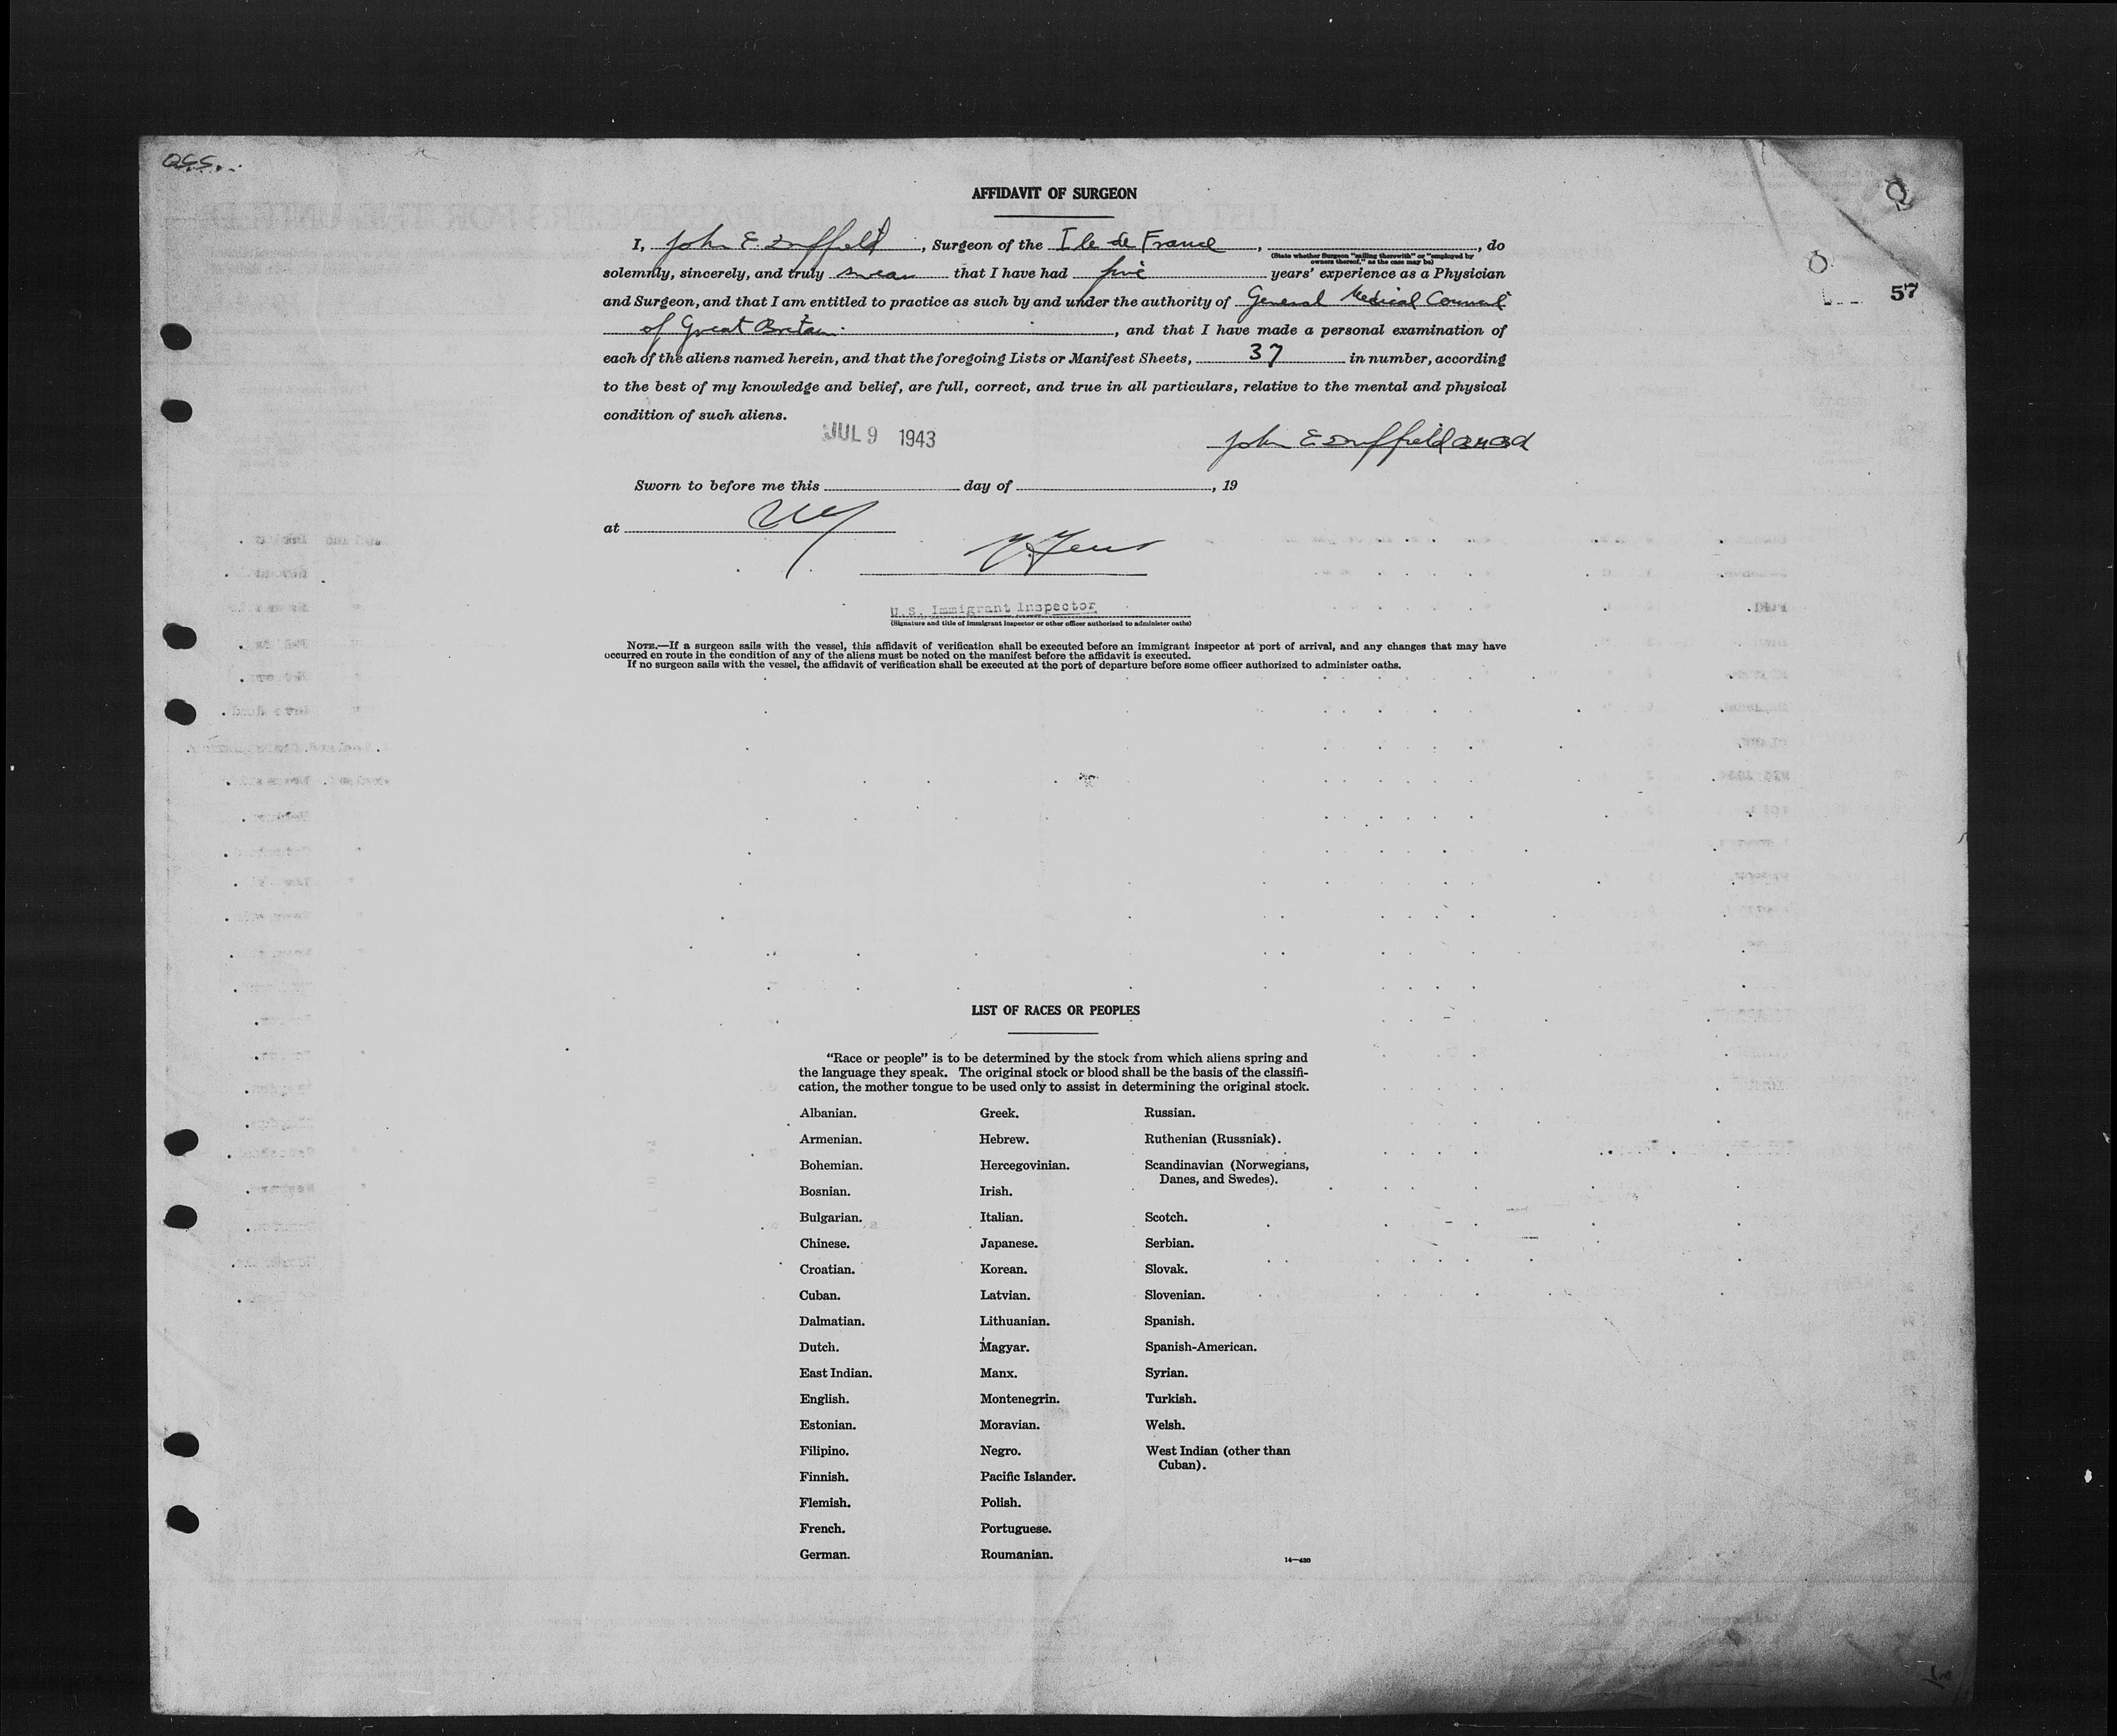 AFFIDAVIT OF SURGEON
57
I, John E Duffield, Surgeon of the Ile de France, , do
(State whether Surgeon "sailing therewith" or "employed by
owners thereof," as the case may be)
solemnly, sincerely, and truly swear that I have had five years' experience as a Physician
and Surgeon, and that I am entitled to practice as such by and under the authority of General Medical Council
of Great Britain. , and that I have made a personal examination of
each of the aliens named herein, and that the foregoing Lists or Manifest Sheets, 37 in number, according
to the best of my knowledge and belief, are full, correct, and true in all particulars, relative to the mental and physical
condition of such aliens.
JUL 9 1943
John E Duffield
Sworn to before me this day of , 19
at NY
U.S. Immigrant Inspector
(Signature and title of immigrant inspector or other officer authorized to administer oaths)
NOTE.—If a surgeon sails with the vessel, this affidavit of verification shall be executed before an immigrant inspector at port of arrival, and any changes that may have
occurred en route in the condition of any of the aliens must be noted on the manifest before the affidavit is executed.
If no surgeon sails with the vessel, the affidavit of verification shall be executed at the port of departure before some officer authorized to administer oaths.
LIST OF RACES OR PEOPLES
"Race or people" is to be determined by the stock from which aliens spring and
the language they speak. The original stock or blood shall be the basis of the classifi-
cation, the mother tongue to be used only to assist in determining the original stock.
Albanian.
Armenian.
Bohemian.
Bosnian.
Bulgarian.
Chinese.
Croatian.
Cuban.
Dalmatian.
Dutch.
East Indian.
English.
Estonian.
Filipino.
Finnish.
Flemish.
French.
German.
Greek.
Hebrew.
Hercegovinian.
Irish.
Italian.
Japanese.
Korean.
Latvian.
Lithuanian.
Magyar.
Manx.
Montenegrin.
Moravian.
Negro.
Pacific Islander.
Polish.
Portuguese.
Roumanian.
Russian.
Ruthenian (Russniak).
Scandinavian (Norwegians,
Danes, and Swedes).
Scotch.
Serbian.
Slovak.
Slovenian.
Spanish.
Spanish-American.
Syrian.
Turkish.
Welsh.
West Indian (other than
Cuban).
14—430